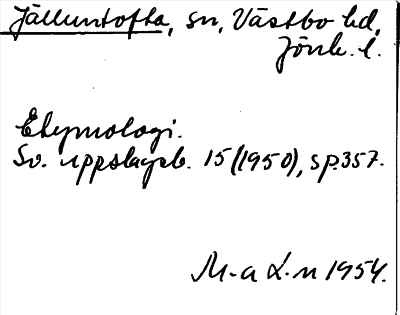 Jälluntofta, sn, Västbo hd,
Jönk. l.
Etymologi.
Sv. uppslagsb. 15 (1950), sp. 357.
M-a L-n 1954.